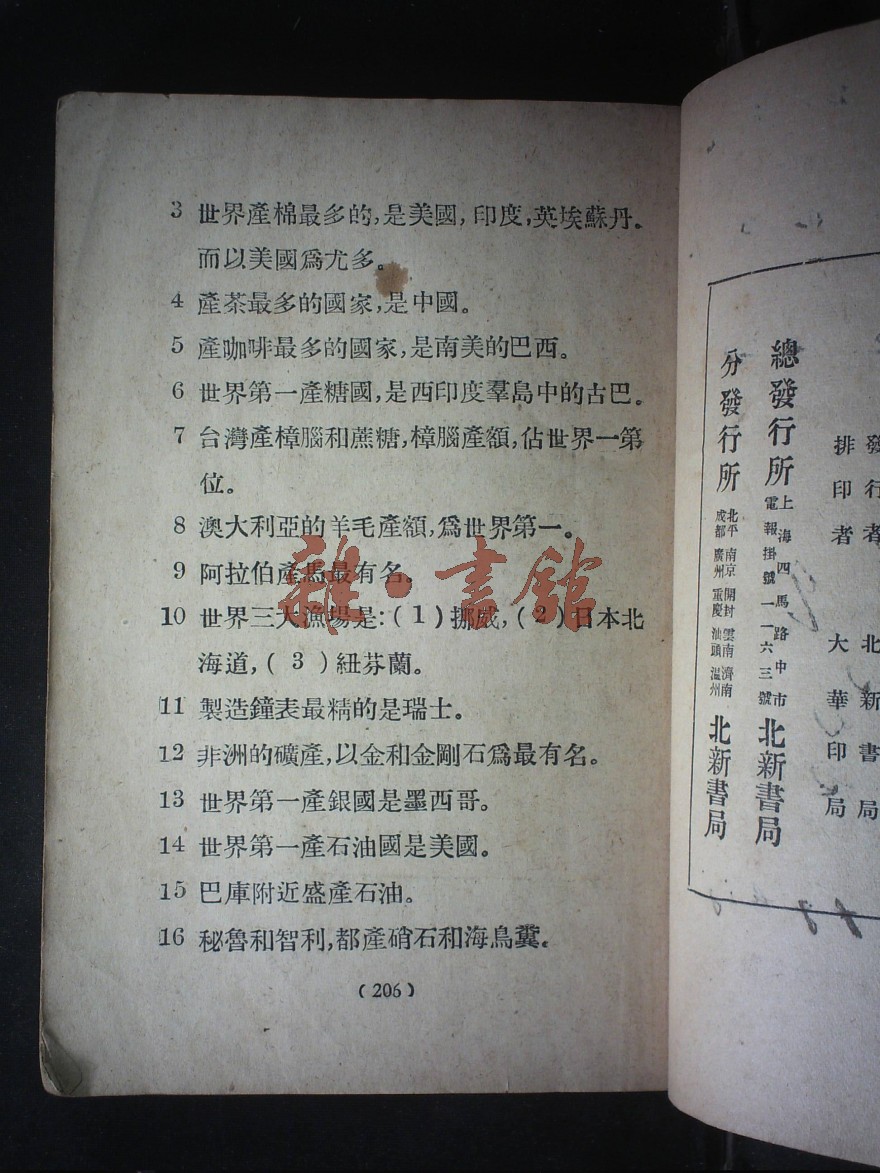 3 世界產棉最多的,是美國,印度,英埃蘇丹。
而以美國爲尤多。
4 產茶最多的國家,是中國。
5 產咖啡最多的國家,是南美的巴西。
6 世界第一產糖國,是西印度羣島中的古巴。
7 台灣產樟腦和蔗糖,樟腦產額,佔世界一第
位。
8 澳大利亞的羊毛產額,爲世界第一。
9 阿拉伯產馬最有名。
10 世界三大漁場是:(1)挪威,(2)日本北
海道,(3)紐芬蘭。
11 製造鐘表最精的是瑞士。
12 非洲的礦產,以金和金剛石爲最有名。
13 世界第一產銀國是墨西哥。
14 世界第一產石油國是美國。
15 巴庫附近盛產石油。
16 秘魯和智利,都產硝石和海鳥糞。
(206)
雜·書館
發行者 北新書局
排印者 大華印局
總發行所 上海四馬路中市 電報掛號一一六三號 北新書局
分發行所 北平 南京 開封 雲南 濟南 成都 廣州 重慶 汕頭 溫州 北新書局